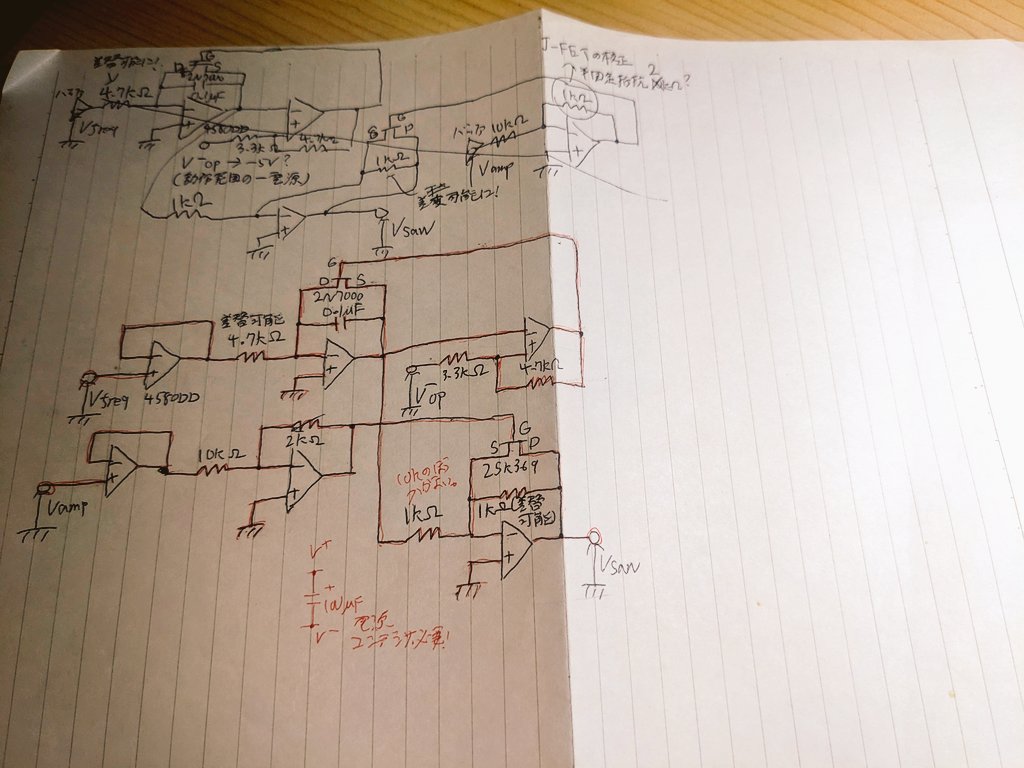 J-FETの校正
↑半固定抵抗 2kΩ?
差替可能に!
G
D S
バッファ
4.7kΩ
0.1μF
Vfreq
4580DD
3.3kΩ
4.7kΩ
V-op → -5V?
(動作範囲の一電源)
G
S D
1kΩ
バッファ
10kΩ
Vamp
1kΩ
差替可能に!
1kΩ
Vsaw
G
D S
2N7000
0.1μF
差替可能
4.7kΩ
Vfreq
4580DD
3.3kΩ
V-op
4.7kΩ
2kΩ
10kΩ
Vamp
G
S D
2SK369
1kΩ(差替可能)
10kの方
1kΩ
Vsaw
V+
+
100μF
V-
電源
コンデンサ必要!